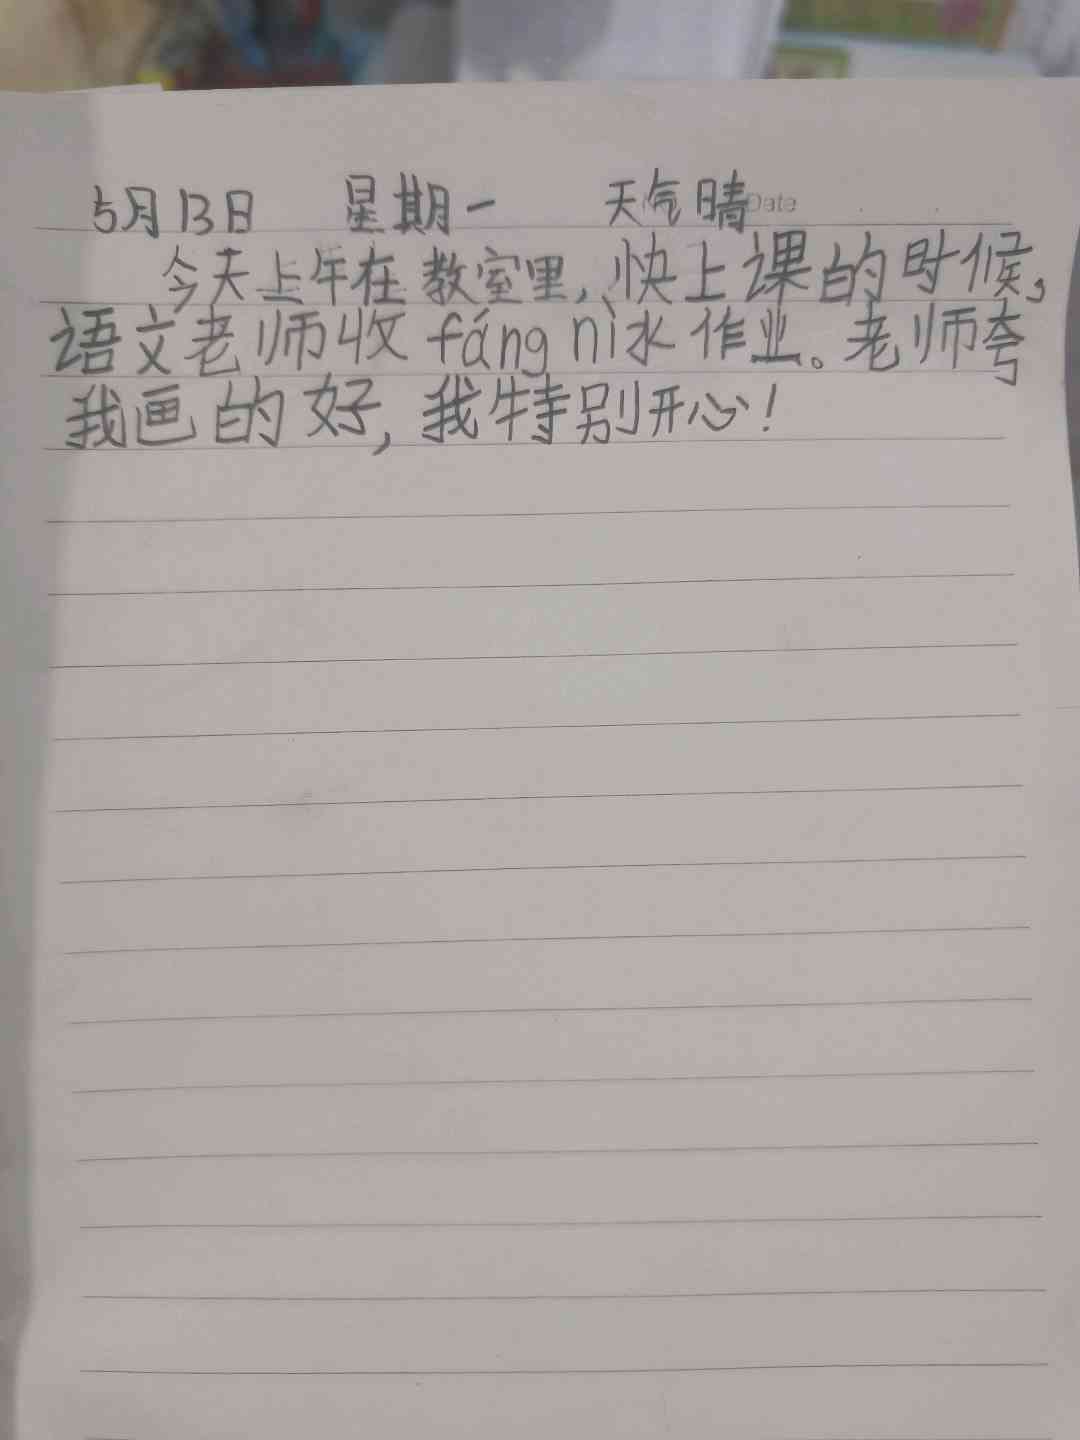 5月13日 星期一 天气晴 Date
今天上午在教室里,快上课的时候,
语文老师收fáng nì水作业。老师夸
我画的好,我特别开心!